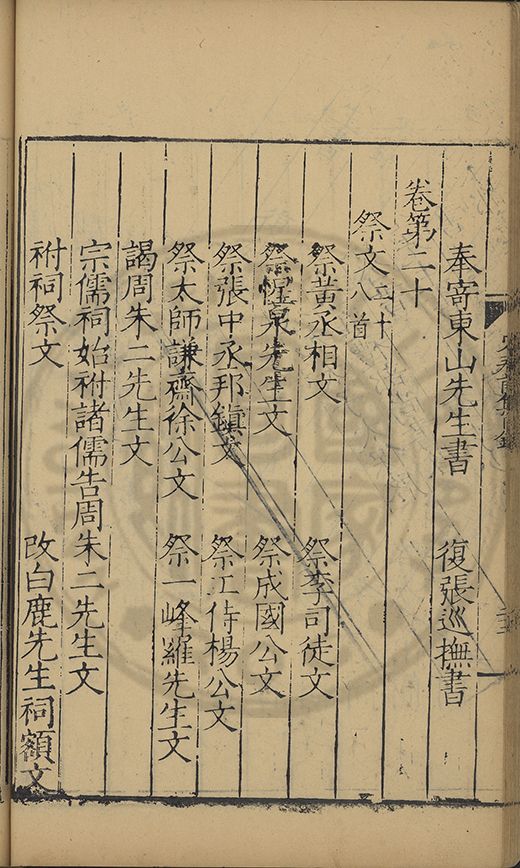 奉寄東山先生書 復張巡撫書
卷第二十
祭文二十八首
祭黃丞相文 祭李司徒文
祭惺泉先生文 祭成國公文
祭張中丞邦鎮文 祭工侍楊公文
祭太師謙齋徐公文 祭一峰羅先生文
謁周朱二先生文
宗儒祠始祔諸儒告周朱二先生文
祔祠祭文 改白鹿先生祠額文